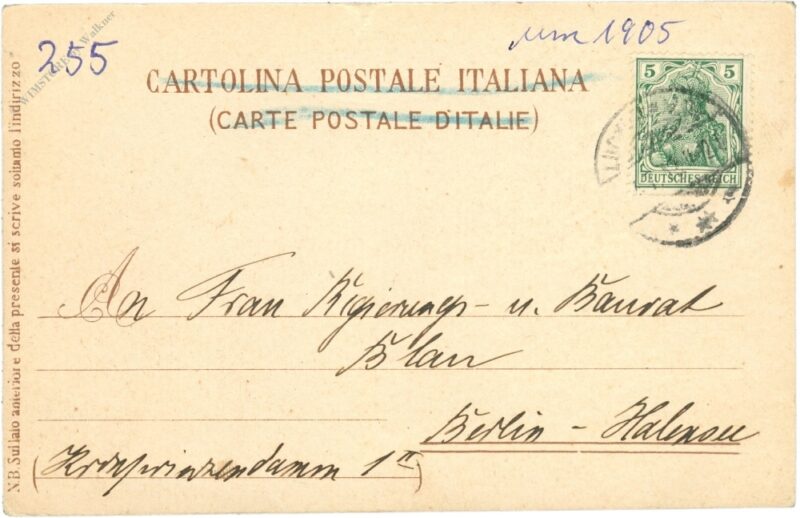 255
um 1905
CARTOLINA POSTALE ITALIANA
(CARTE POSTALE D'ITALIE)
5 5
DEUTSCHES REICH
N.B. Sul lato anteriore della presente si scrive soltanto l'indirizzo
An Frau Regierungs- u. Baurat
Blau
Berlin - Halensee
(Kronprinzendamm 1 II)